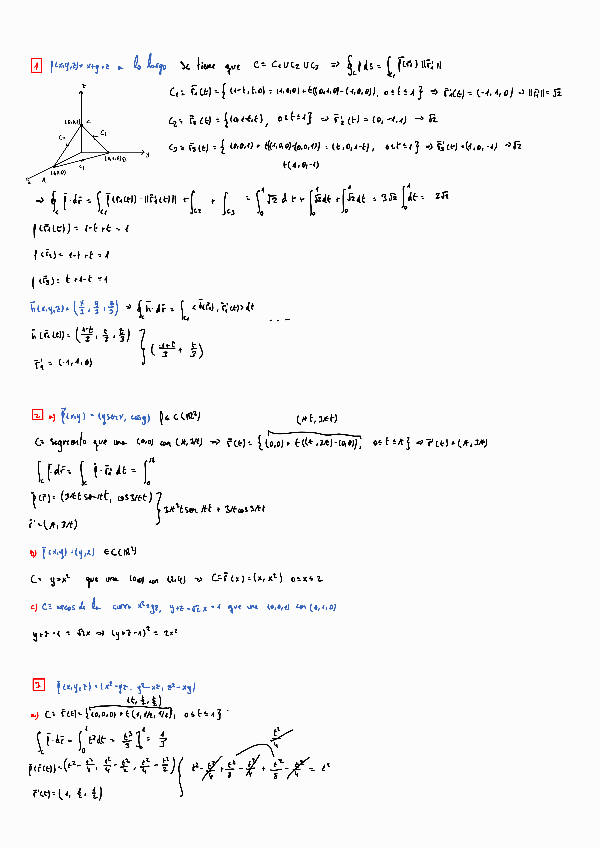 1 f(x,y,z) = x+y+z a lo largo Se tiene que C = C1 ∪ C2 ∪ C3 ⇒ ∮_C f ds = ∫_C1 f(r̄1) ||r̄1'||
C1 = r̄1(t) = { (1-t, t, 0) = (1,0,0) + t((0,1,0) - (1,0,0)), 0 ≤ t ≤ 1 } ⇒ r̄1'(t) = (-1, 1, 0) → ||r̄1'|| = √2
C2 = r̄2(t) = { (0, 1-t, t), 0 ≤ t ≤ 1 } ⇒ r̄2'(t) = (0, -1, 1) → √2
C3 = r̄3(t) = { (0,0,1) + t((1,0,0) - (0,0,1)) = (t, 0, 1-t), 0 ≤ t ≤ 1 } ⇒ r̄3'(t) = (1, 0, -1) → √2
t(1, 0, -1)
⇒ ∮_C f̄·dr̄ = ∫_C1 f̄(r̄1(t)) · ||r̄1'(t)|| + ∫_C2 + ∫_C3 = ∫_0^1 √2 dt + ∫_0^1 √2 dt + ∫_0^1 √2 dt = 3√2 ∫_0^1 dt = 3√2
f(r̄1(t)) = 1-t+t = 1
f(r̄2) = 1-t+t = 1
f(r̄3) = t+1-t = 1
h̄(x,y,z) = (x/3, y/3, z/3) ⇒ ∮_C h̄·dr̄ = ∫_C1 <h̄(r̄1), r̄1'(t)> dt
h̄(r̄1(t)) = (
r̄1' = (-1, 1, 0)
2 a) f̄(x,y) = (y sen x, cos y) f ∈ C(ℝ²)
(πt, 3πt)
C = segmento que une (0,0) con (π, 3π) ⇒ r̄(t) = { (0,0) + t((π, 3π) - (0,0)), 0 ≤ t ≤ π } ⇒ r̄'(t) = (π, 3π)
∫_C f̄·dr̄ = ∫_C f̄·r̄' dt = ∫_0^π
f(r̄) = (3πt sen πt, cos 3πt)
3π²t sen πt + 3π cos 3πt
r̄' = (π, 3π)
b) f̄(x,y) = (y,x) ∈ C(ℝ²)
C = y=x² que une (0,0) con (2,4) ⇒ C = r̄(x) = (x, x²) 0 ≤ x ≤ 2
c) C = arcos de la curva x² = yz, y+z = √2 x + 1 que une (0,0,1) con (0,1,0)
y+z-1 = √2x ⇒ (y+z-1)² = 2x²
3 f̄(x,y,z) = (x²-yz, y²-xz, z²-xy)
(t, t/2, t/2)
a) C = r̄(t) = { (0,0,0) + t(1, 1/2, 1/2), 0 ≤ t ≤ 1 }
∫_C f̄·dr̄ = ∫_0^1 t² dt = t³/3 ]_0^1 = 1/3
t²/4
f̄(r̄(t)) = (t² - t²/4, t²/4 - t²/2, t²/4 - t²/2) t² - t²/4 + t²/8 - t²/4 + t²/8 - t²/4 = t²
r̄'(t) = (1, 1/2, 1/2)